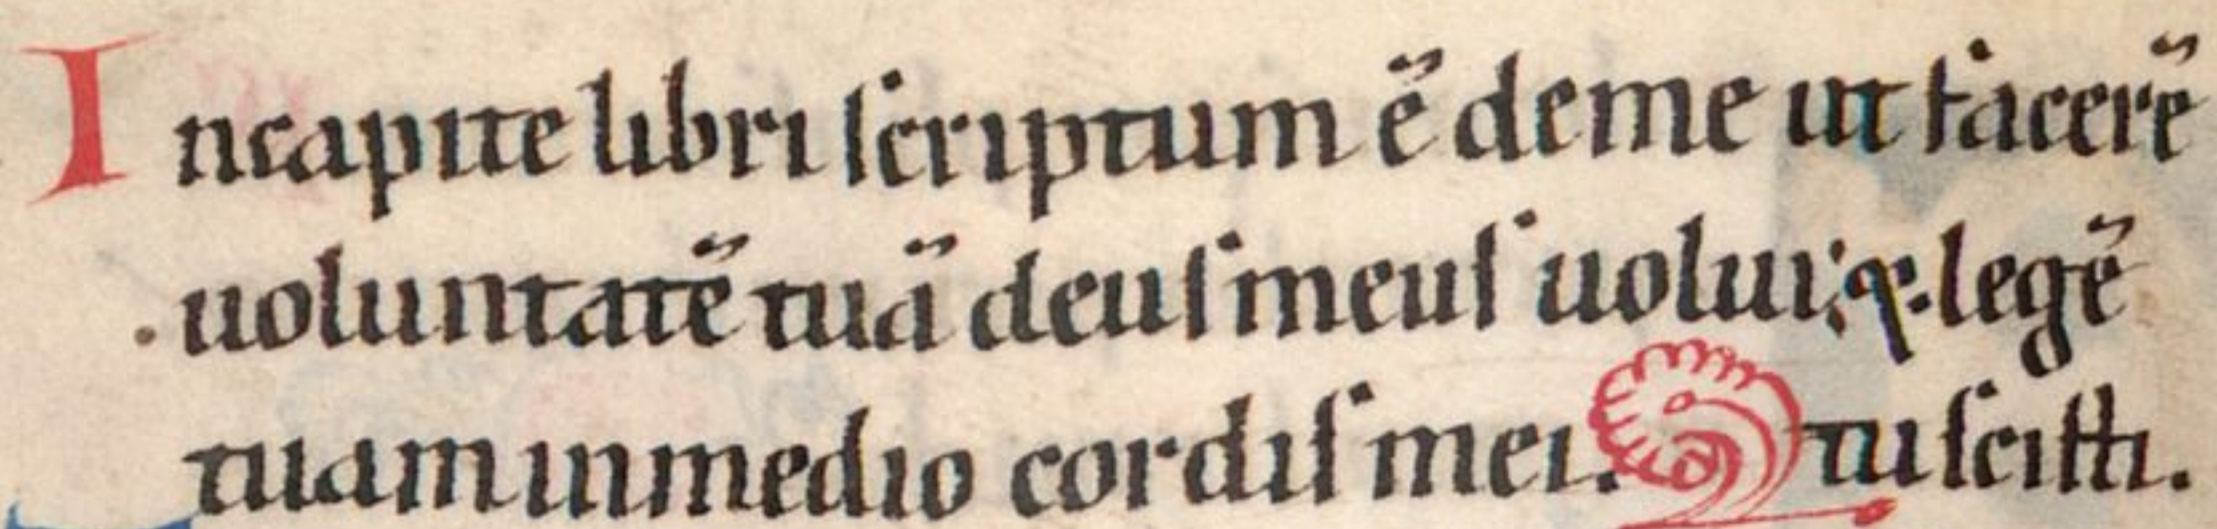 Incapite libri scriptum ē deme ut facerē
uoluntatē tuā deus meus uolui; & legē
tuam inmedio cordis mei. tu scisti.